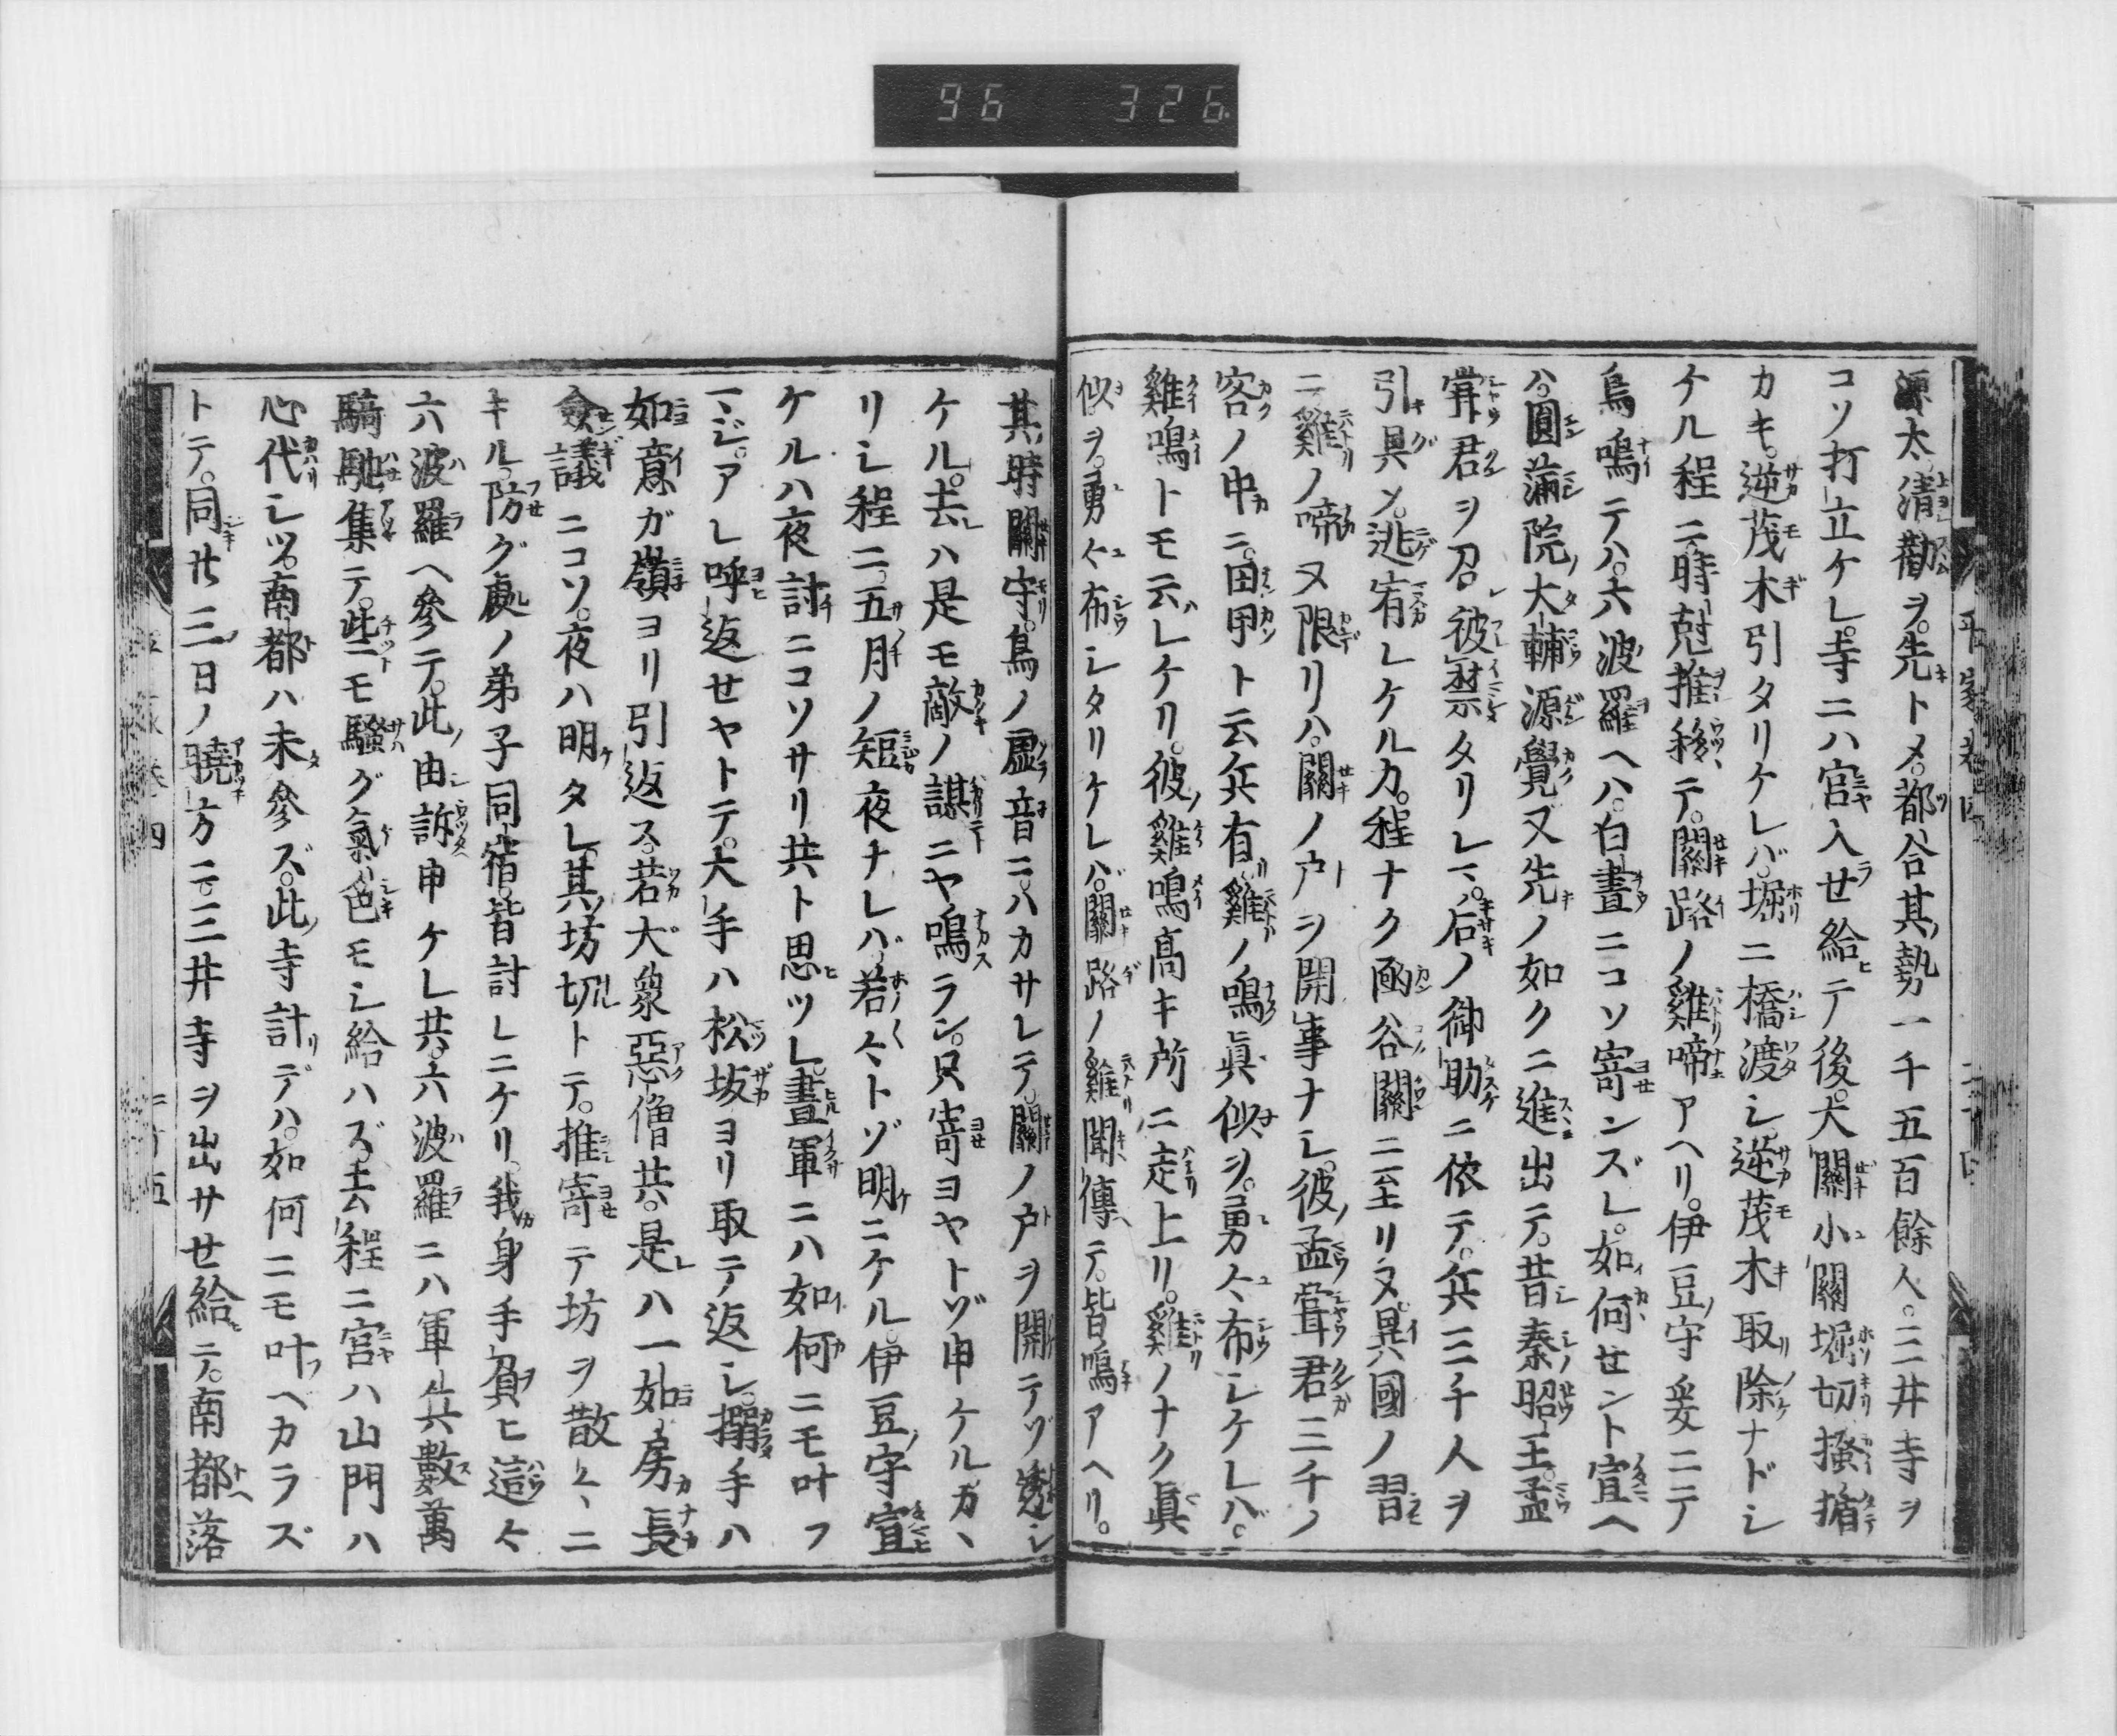 96 326
源太清勸ヲ先トメ都合其勢一千五百餘人三井寺ヲ
コソ打立ケレ寺ニハ宮入せ給テ後大關小關堀切搔楯
カキ逆茂木引タリケレバ堀ニ橋渡シ逆茂木取除ナドシ
ケル程ニ時尅推移テ關路ノ雞啼アヘリ伊豆守爰ニテ
鳥鳴テハ六波羅ヘハ白晝ニコソ寄ンズレ如何せント宣ヘ
ハ圓滿院大輔源覺又先ノ如クニ進出テ昔秦昭王孟
甞君ヲ召被禁タリレニ后ノ御助ニ依テ兵三千人ヲ
引具メ逃宥レケルカ程ナク凾谷關ニ至リヌ異國ノ習
ニ雞ノ啼ヌ限リハ關ノ戸ヲ開事ナシ彼孟甞君三千ノ
客ノ中ニ田甲ト云兵有雞ノ鳴眞似ヲ勇々布シケレバ
雞鳴トモ云レケリ彼雞鳴高キ所ニ走上リ雞ノナク眞
似ヲ勇々布シタリケレバ關路ノ雞聞傳テ皆鳴アヘリ
其時關守鳥ノ虛音ニハカサレテ關ノ戸ヲ開テヅ透シ
ケル去ハ是モ敵ノ謀ニヤ鳴ラン只寄ヨヤトヅ申ケルガヽ
リシ程ニ五月ノ短夜ナレバ若々トゾ明ニケル伊豆守宣
ケルハ夜討ニコソサリ共ト思ツレ晝軍ニハ如何ニモ叶フ
マジアレ呼返せヤトテ大手ハ松坂ヨリ取テ返シ搦手ハ
如意ガ嶺ヨリ引返ス若大衆惡僧共是ハ一如房長
僉議ニコソ夜ハ明タレ其坊切トテ推寄テ坊ヲ散々ニ
キル防グ處ノ弟子同宿皆討レニケリ我身手負ヒ這々
六波羅ヘ參テ此由訴申ケレ共六波羅ニハ軍兵數萬
騎馳集テ些モ騷グ氣色モシ給ハズ去程ニ宮ハ山門ハ
心代シツ南都ハ未參ズ此寺計デハ如何ニモ叶ベカラズ
トテ同廿三日ノ曉方ニ三井寺ヲ出サせ給テ南都落